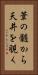 葦の髄から
天井を覗く